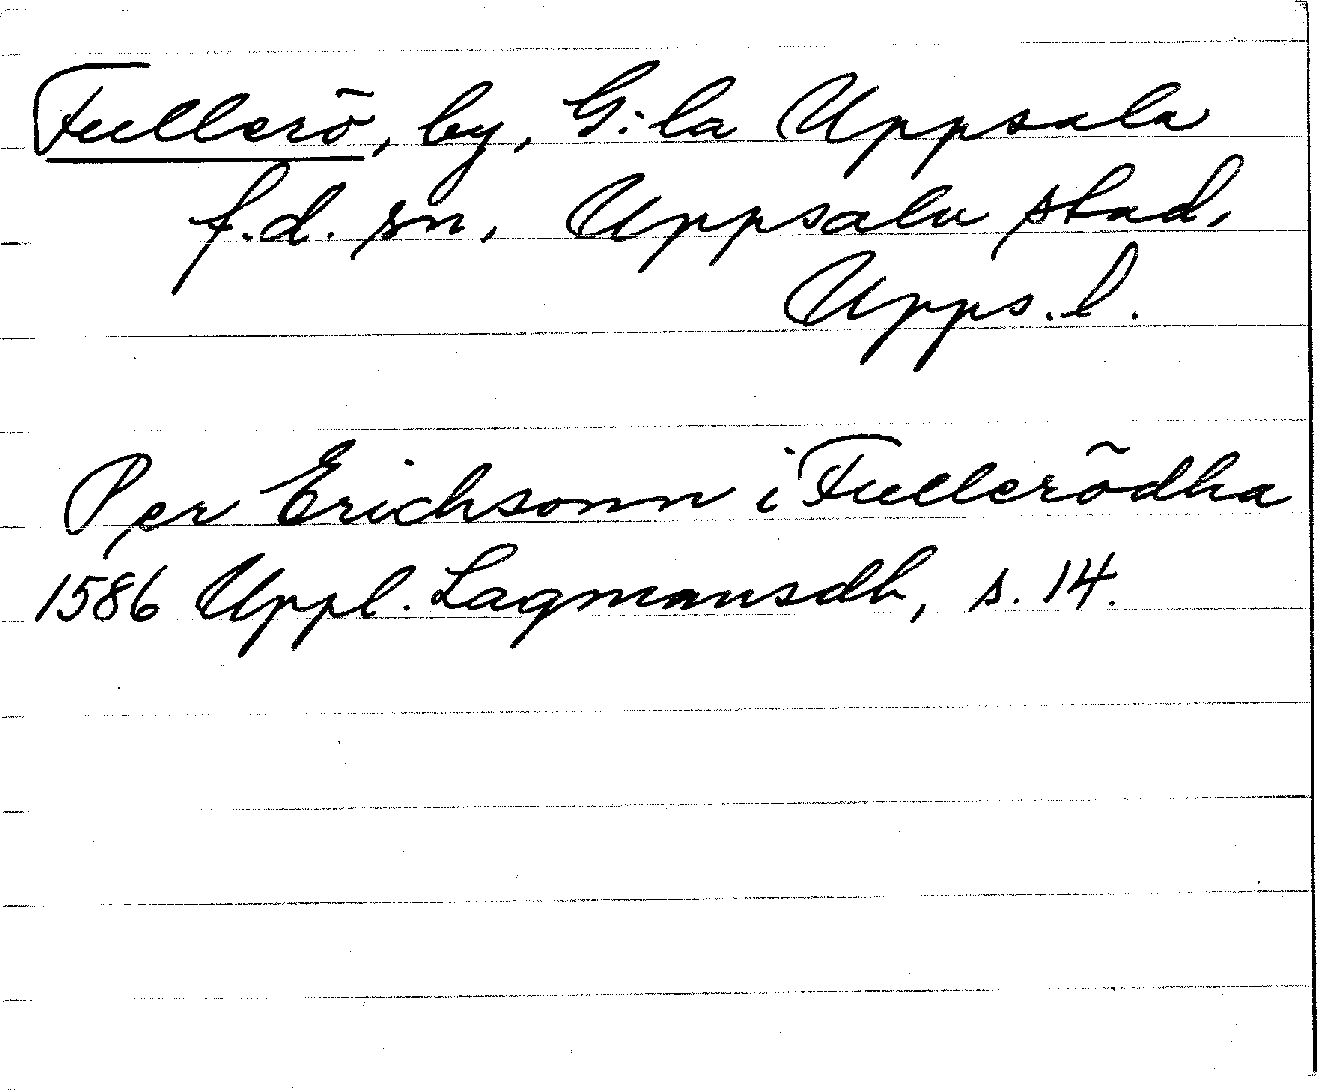 Fullerö, by, G:la Uppsala
f.d. sn, Uppsala stad,
Upps. l.
Per Erichsonn i Fullerödha
1586 Uppl. Lagmansdb, s. 14.